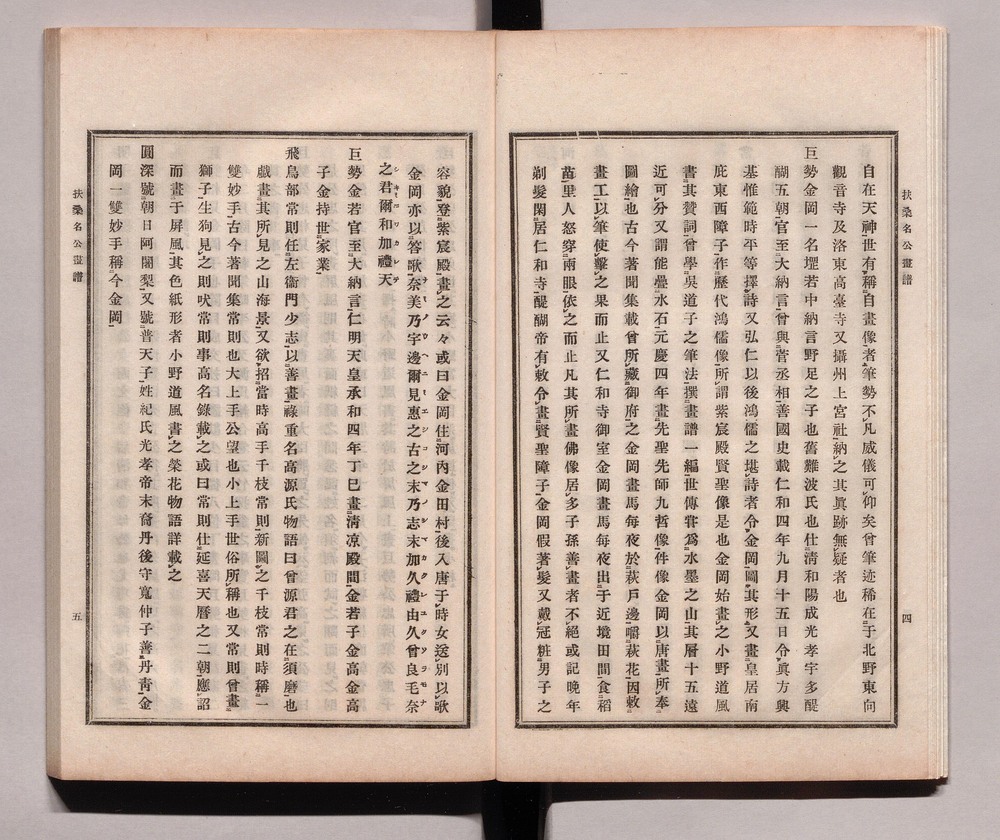 扶桑名公畫譜
四
自在天神世有稱自畫像者筆勢不凡威儀可仰矣曾筆迹稀在于北野東向
觀音寺及洛東高臺寺又攝州上宮社納之其眞跡無疑者也
巨勢金岡一名堽若中納言野足之子也舊難波氏也仕清和陽成光孝宇多醍
醐五朝官至大納言曾與菅丞相善國史載仁和四年九月十五日令眞方興
基惟範時平等擇詩又弘仁以後鴻儒之堪詩者令金岡圖其形又畫皇居南
庇東西障子作歷代鴻儒像所謂紫宸殿賢聖像是也金岡始畫之小野道風
書其贊詞曾學吳道子之筆法撰畫譜一編世傳甞爲水墨之山其層十五遠
近可分又謂能疊水石元慶四年畫先聖先師九哲像件像金岡以唐畫所奉
圖繪也古今著聞集載曾所藏御府之金岡畫馬每夜於萩戶邊嚼萩花因敕
畫工以筆使擊之果而止又仁和寺御室金岡畫馬每夜出于近境田間食稻
苗里人怒穿兩眼依之而止凡其所畫佛像居多子孫善畫者不絕或記晚年
剃髮閑居仁和寺醍醐帝有敕令畫賢聖障子金岡假著髮又戴冠粧男子之
容貌登紫宸殿畫之云々或曰金岡住河內金田村後入唐于時女送別以歌
金岡亦以答歌奈美乃宇邊爾見惠之古之末乃志末加久禮由久曾良毛奈
之君爾和加禮天
巨勢金若官至大納言仁明天皇承和四年丁巳畫清凉殿間金若子金高金高
子金持世家業
飛鳥部常則任左衞門少志以善畫祿重名高源氏物語曰曾源君之在須磨也
戯畫其所見之山海景又欲招當時高手千枝常則新圖之千枝常則時稱一
雙妙手古今著聞集常則也大上手公望也小上手世俗所稱也又常則曾畫
獅子生狗見之則吠常則事高名錄載之或曰常則仕延喜天曆之二朝應詔
而畫于屏風其色紙形者小野道風書之榮花物語詳載之
圓深號朝日阿闍梨又號普天子姓紀氏光孝帝末裔丹後守寬仲子善丹靑金
岡一雙妙手稱今金岡
扶桑名公畫譜
五